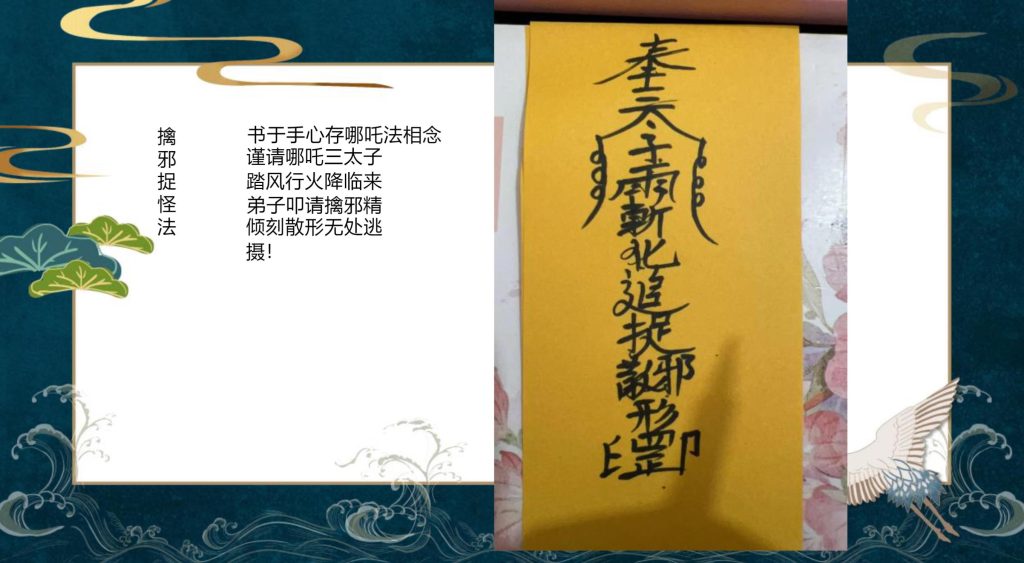 擒邪捉怪法
书于手心存哪吒法相念
谨请哪吒三太子
踏风行火降临来
弟子叩请擒邪精
倾刻散形无处逃
摄!
奉三天子雨斬追捉邪形罡印